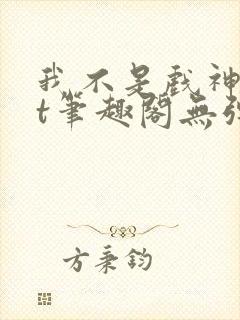 我不是戏神
t筆趣閣無弹
方秉鈞